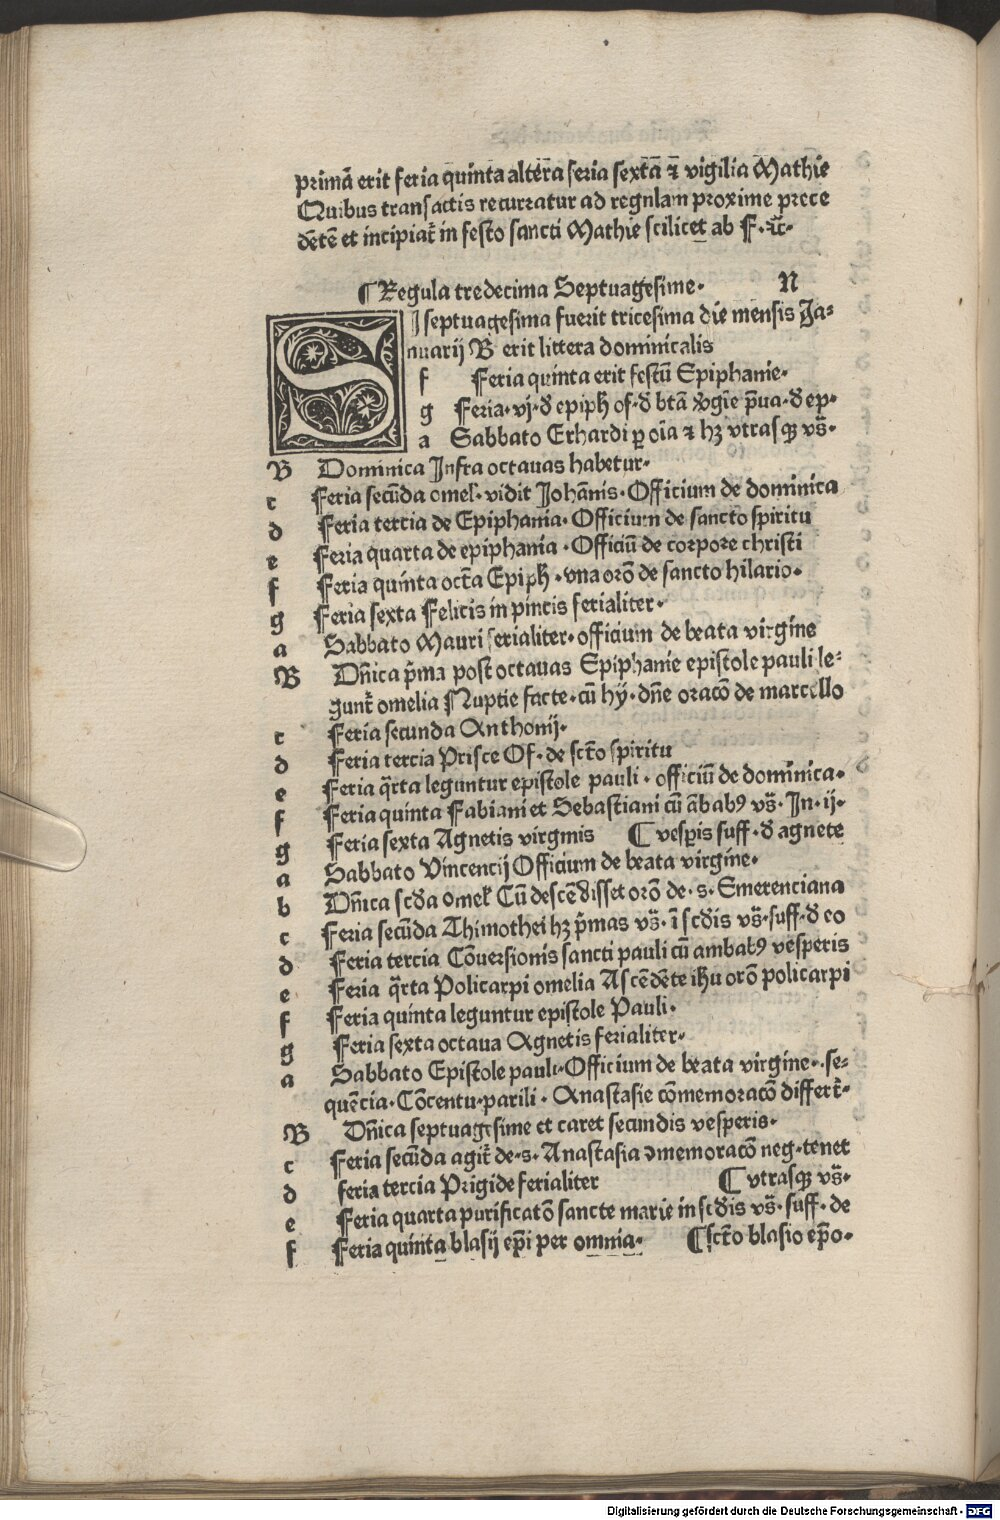 primā erit feria quinta altera feria sextā ⁊ vigilia Mathie
Quibus transactis recurratur ad regulam proxime prece
dētē et incipiat̄ in festo sancti Mathie scilicet ab F· ⁊c̄·
¶ Regula tredecima Septuagesime· N
SI septuagesima fuerit tricesima die mensis Ja⸗
nuarij B erit littera dominicalis
f Feria quinta erit festū Epiphanie·
g Feria·vj·d̄ epiph̄ of·d̄ btā v̄gīe p̄ua·d̄ ep·
a Sabbato Erhardi ꝑ oīa ⁊ hꝫ vtrasqꝫ vs̄·
B Dominica Infra octauas habetur·
c Feria secūda omel·vidit Johānis·Officium de dominica
d Feria tercia de Epiphania·Officium de sancto spiritu
e Feria quarta de epiphania·Officiū de corpore christi
f Feria quinta octā Epiph̄·vna orō de sancto hilario·
g Feria sexta Felicis in pincis ferialiter·
a Sabbato Mauri ferialiter·officium de beata virgine
B Dn̄ica p̄ma post octauas Epiphanie epistole pauli le⸗
gunt̄ omelia Nuptie facte·cū hy·dn̄e oracō de marcello
c Feria secunda Anthonij·
d Feria tercia Prisce Of·de sctō spiritu
e Feria q̄rta leguntur epistole pauli·officiū de dominica·
f Feria quinta Fabiani et Sebastiani cū ābabꝰ vs̄·In·ij·
g Feria sexta Agnetis virginis ¶ vesperis suff·d̄ agnete
a Sabbato Vincencij Officium de beata virgine·
b Dn̄ica scd̄a omel Cū descēdisset orō de·s·Emerenciana
c Feria secūda Thimothei hꝫ p̄mas vs̄·ī scd̄is vs̄·suff·d̄ eo
d Feria tercia Cōuersionis sancti pauli cū ambabꝰ vesperis
e Feria q̄rta Policarpi omelia Ascēdēte ih̄u orō policarpi
f Feria quinta leguntur epistole Pauli·
g Feria sexta octaua Agnetis ferialiter·
a Sabbato Epistole pauli·Officium de beata virgine·se⸗
quēcia·Cōcentu·parili·Anastasie cōmemoracō differt̄·
B Dn̄ica septuagesime et caret secundis vesperis·
c Feria secūda agit̄ de·s·Anastasia ↄmemoracō neg·tenet
d feria tercia Prigide ferialiter ¶ vtrasqꝫ vs̄·
e Feria quarta purificatō sancte marie in scd̄is vs̄·suff·de
f Feria quinta blasij ep̄i per omnia· ¶ sctō blasio ep̄o·
Digitalisierung gefördert durch die Deutsche Forschungsgemeinschaft - DFG